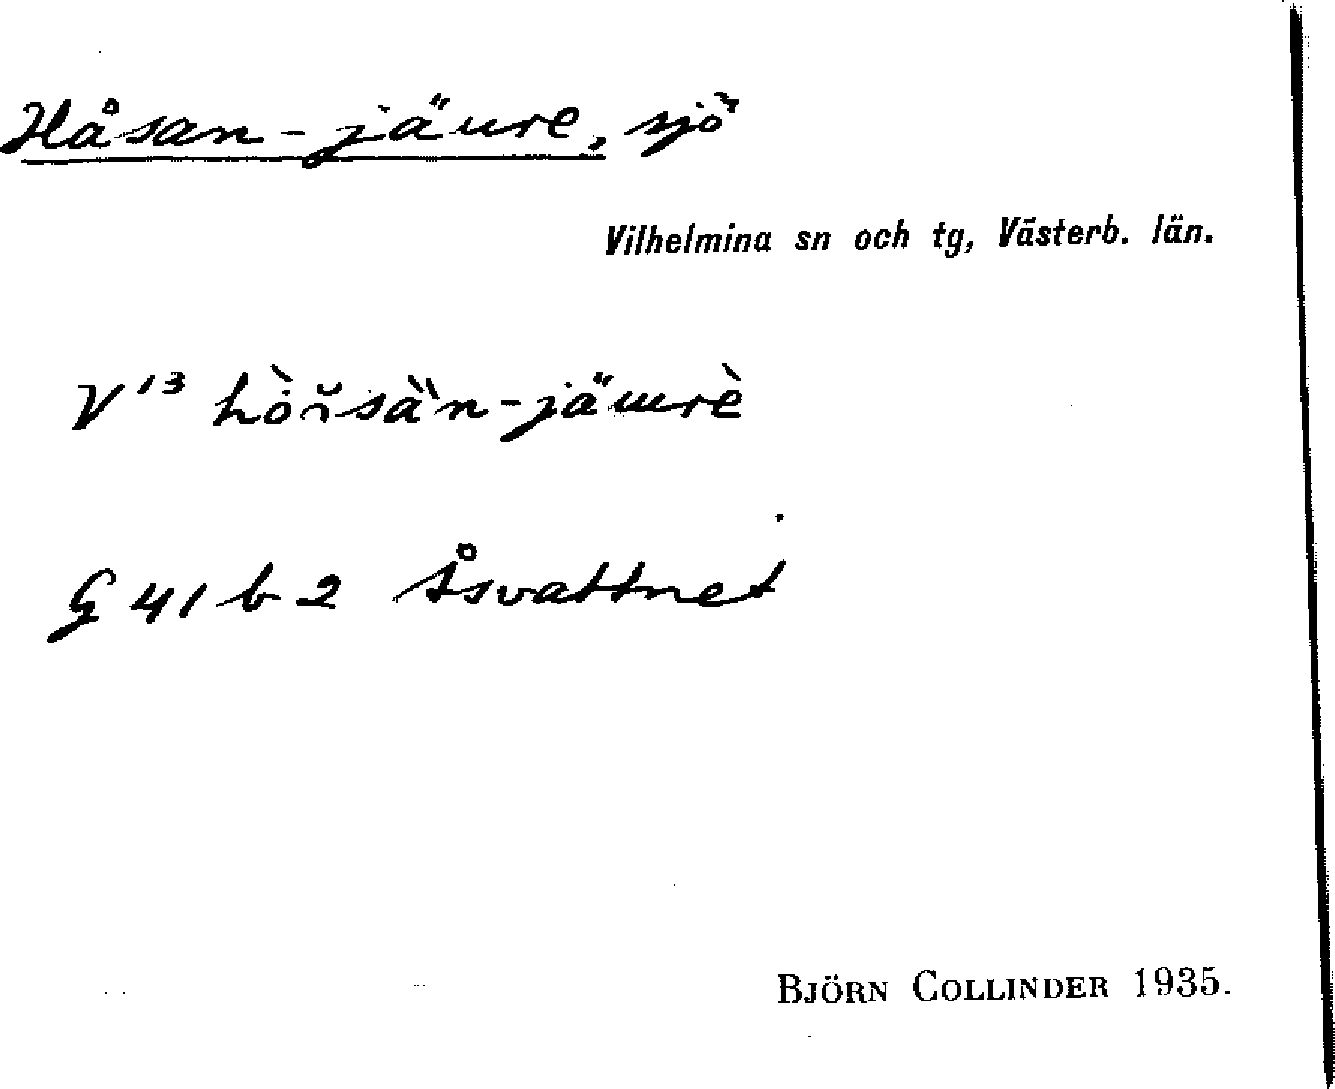 Håsan-jäure, sjö
Vilhelmina sn och tg, Västerb. län.
V¹³ hòĭ̯sä̀n-jäuɯrè
G 41 b 2 Åsvattnet
BJÖRN COLLINDER 1935.